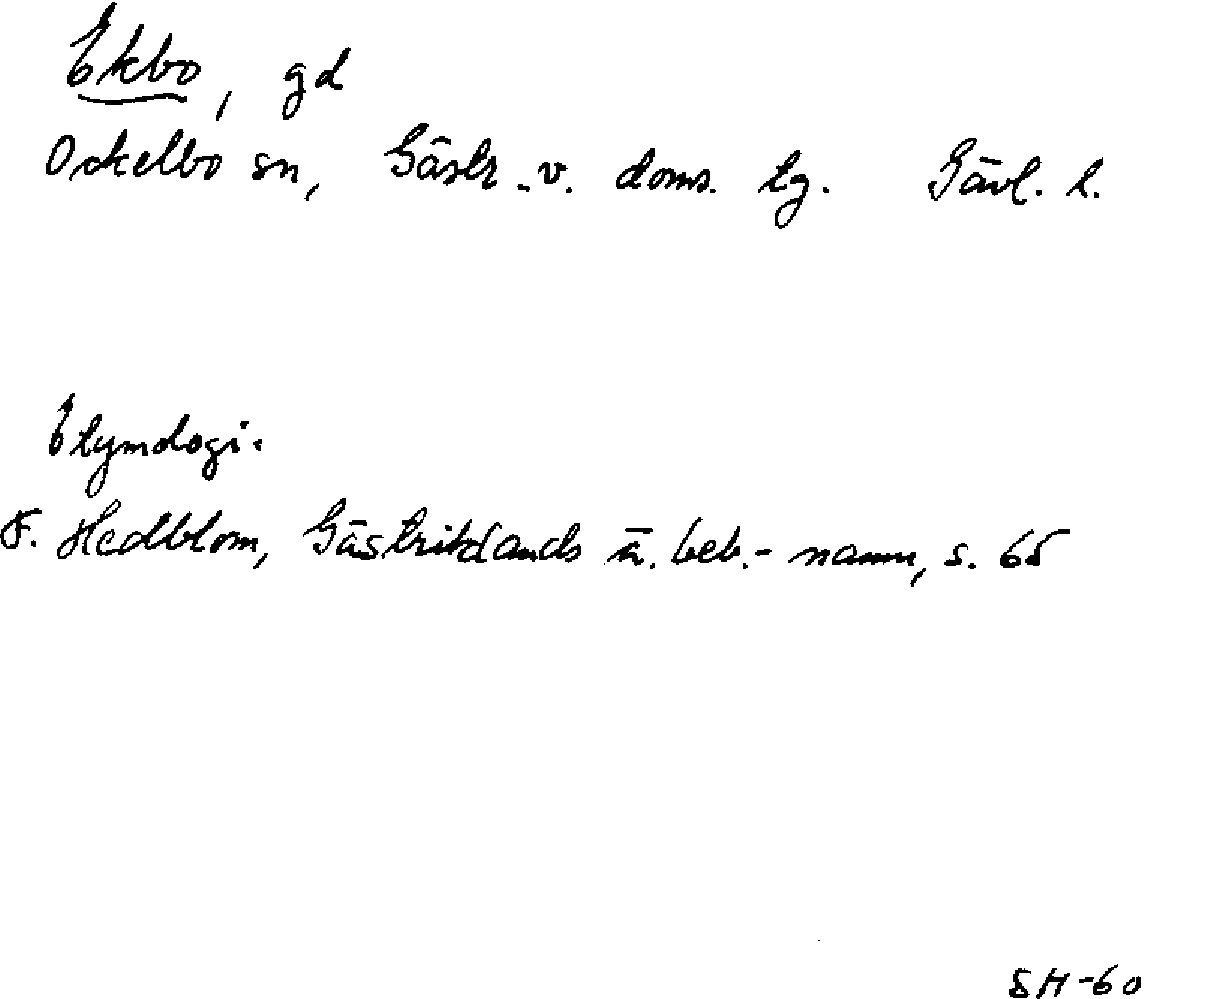 Ekbo, gd
Ockelbo sn, Gästr.-v. doms. tg. Gävl. l.
Etymologi.
F. Hedblom, Gästriklands ä. beb.-namn, s. 65
SH-60